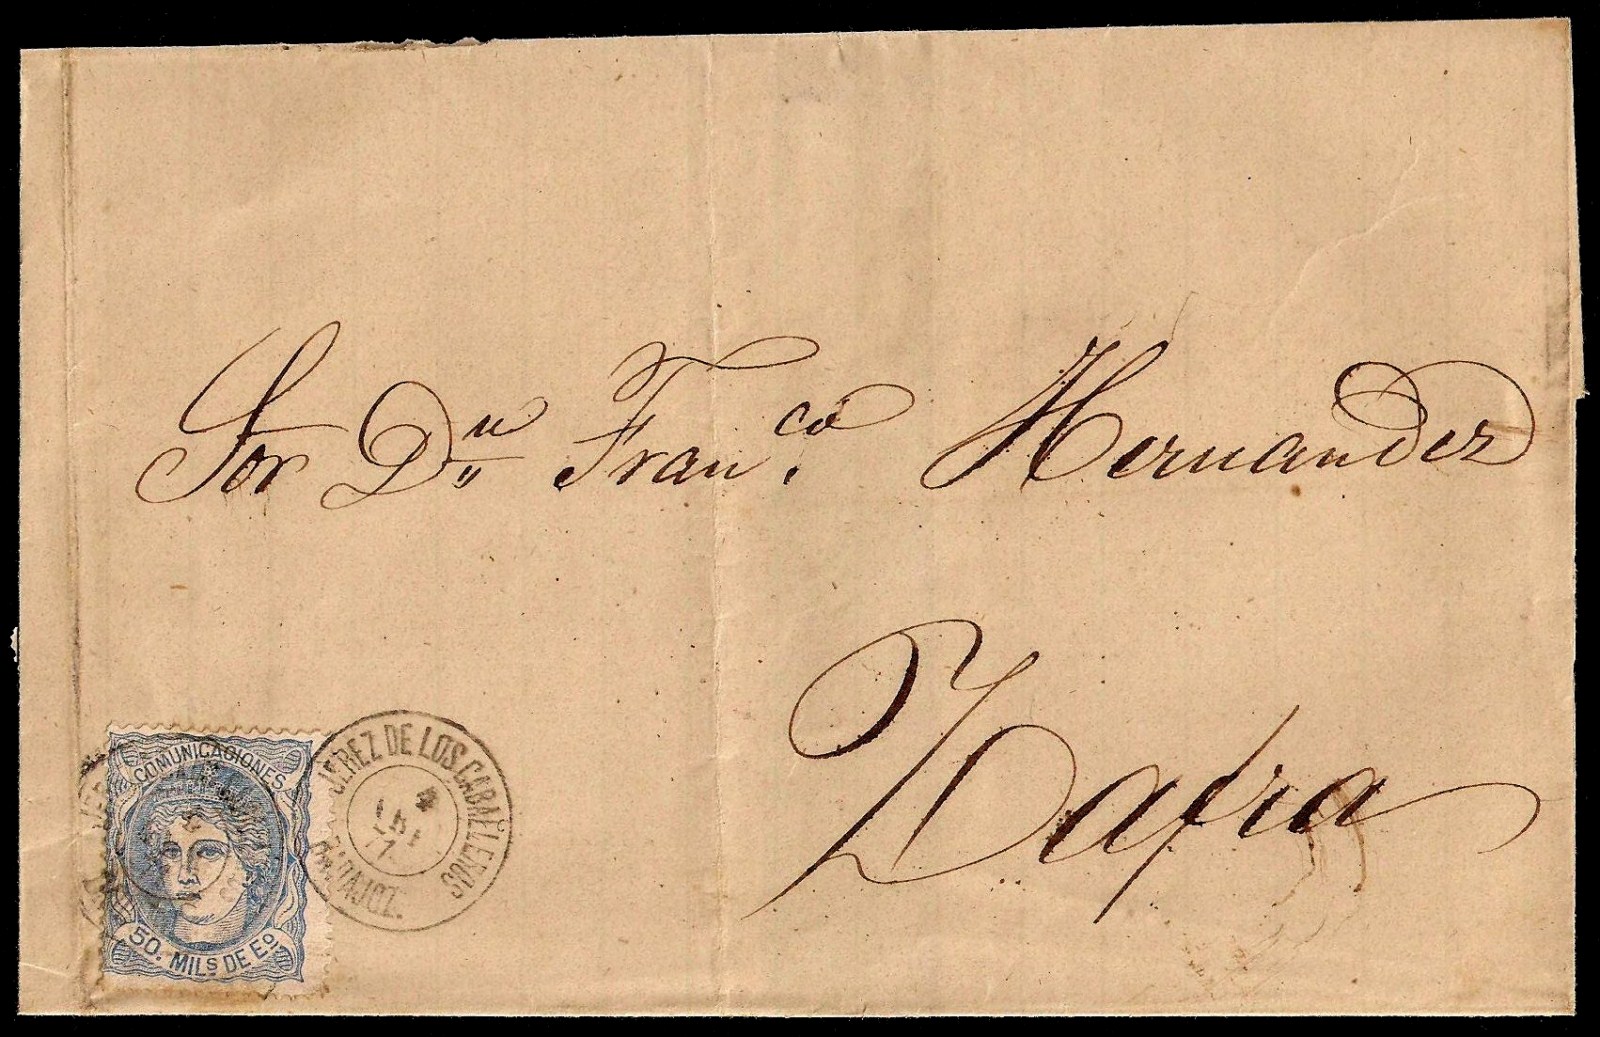 Sor Dn Franco. Hernandez
Zafra
COMUNICACIONES
50. MILS DE Eo
JEREZ DE LOS CABALLEROS
BADAJOZ.